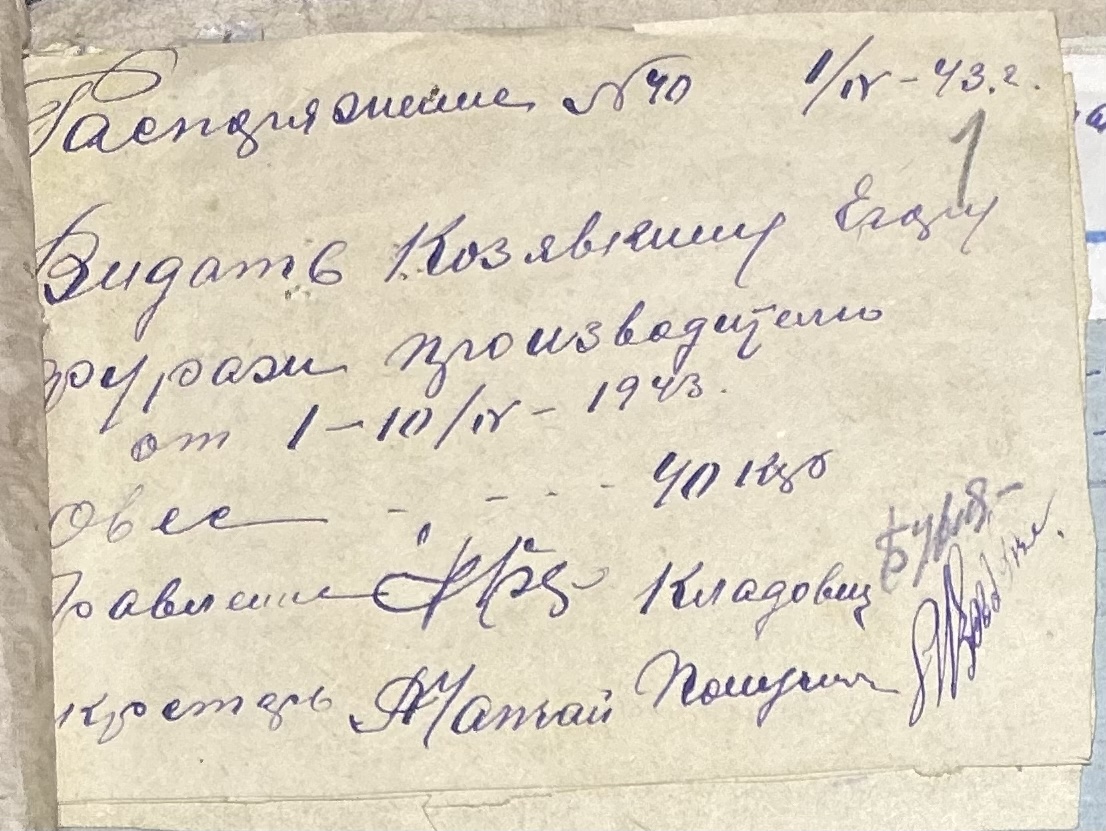 Распоряжение №40 1/IV-43.г.
1
Видать Козявкину Егору
фураж производителю
от 1-10/IV- 1943.
Овес - - - - 40 кгр
Правление Кладовщ
екретарь Получил